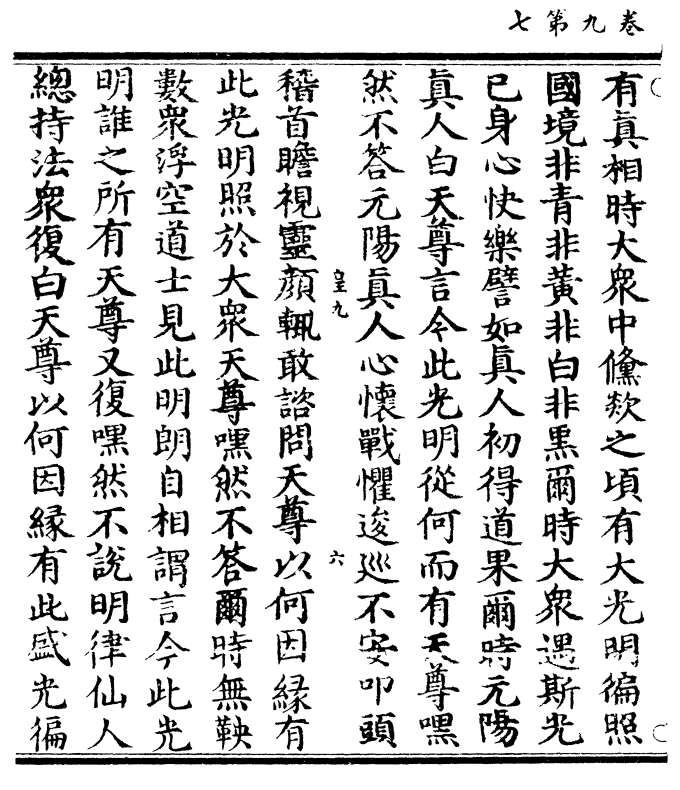 卷九第七
有眞相時大衆中儵欻之頃有大光明徧照
國境非青非黄非白非黒爾時大衆遇斯光
已身心快樂譬如眞人初得道果爾時元陽
眞人白天尊言今此光明從何而有天尊嘿
然不答元陽眞人心懷戰懼逡巡不安叩頭
皇九
六
稽首瞻視靈顔輒敢諮問天尊以何因緣有
此光明照於大衆天尊嘿然不答爾時無鞅
數衆浮空道士見此明朗自相謂言今此光
明誰之所有天尊又復嘿然不說明律仙人
總持法衆復白天尊以何因緣有此盛光徧